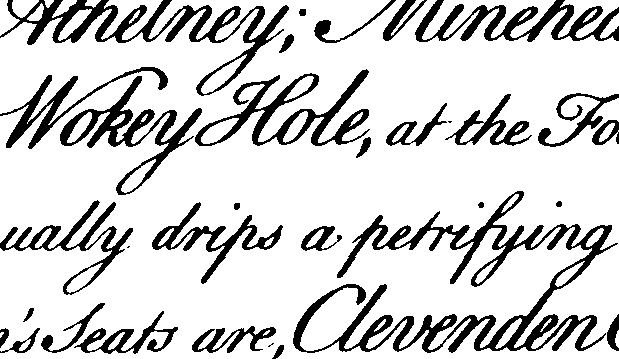 Athelney; Minehea
Wokey Hole, at the Fo
ually drips a petrifying
n's Seats are, Clevenden